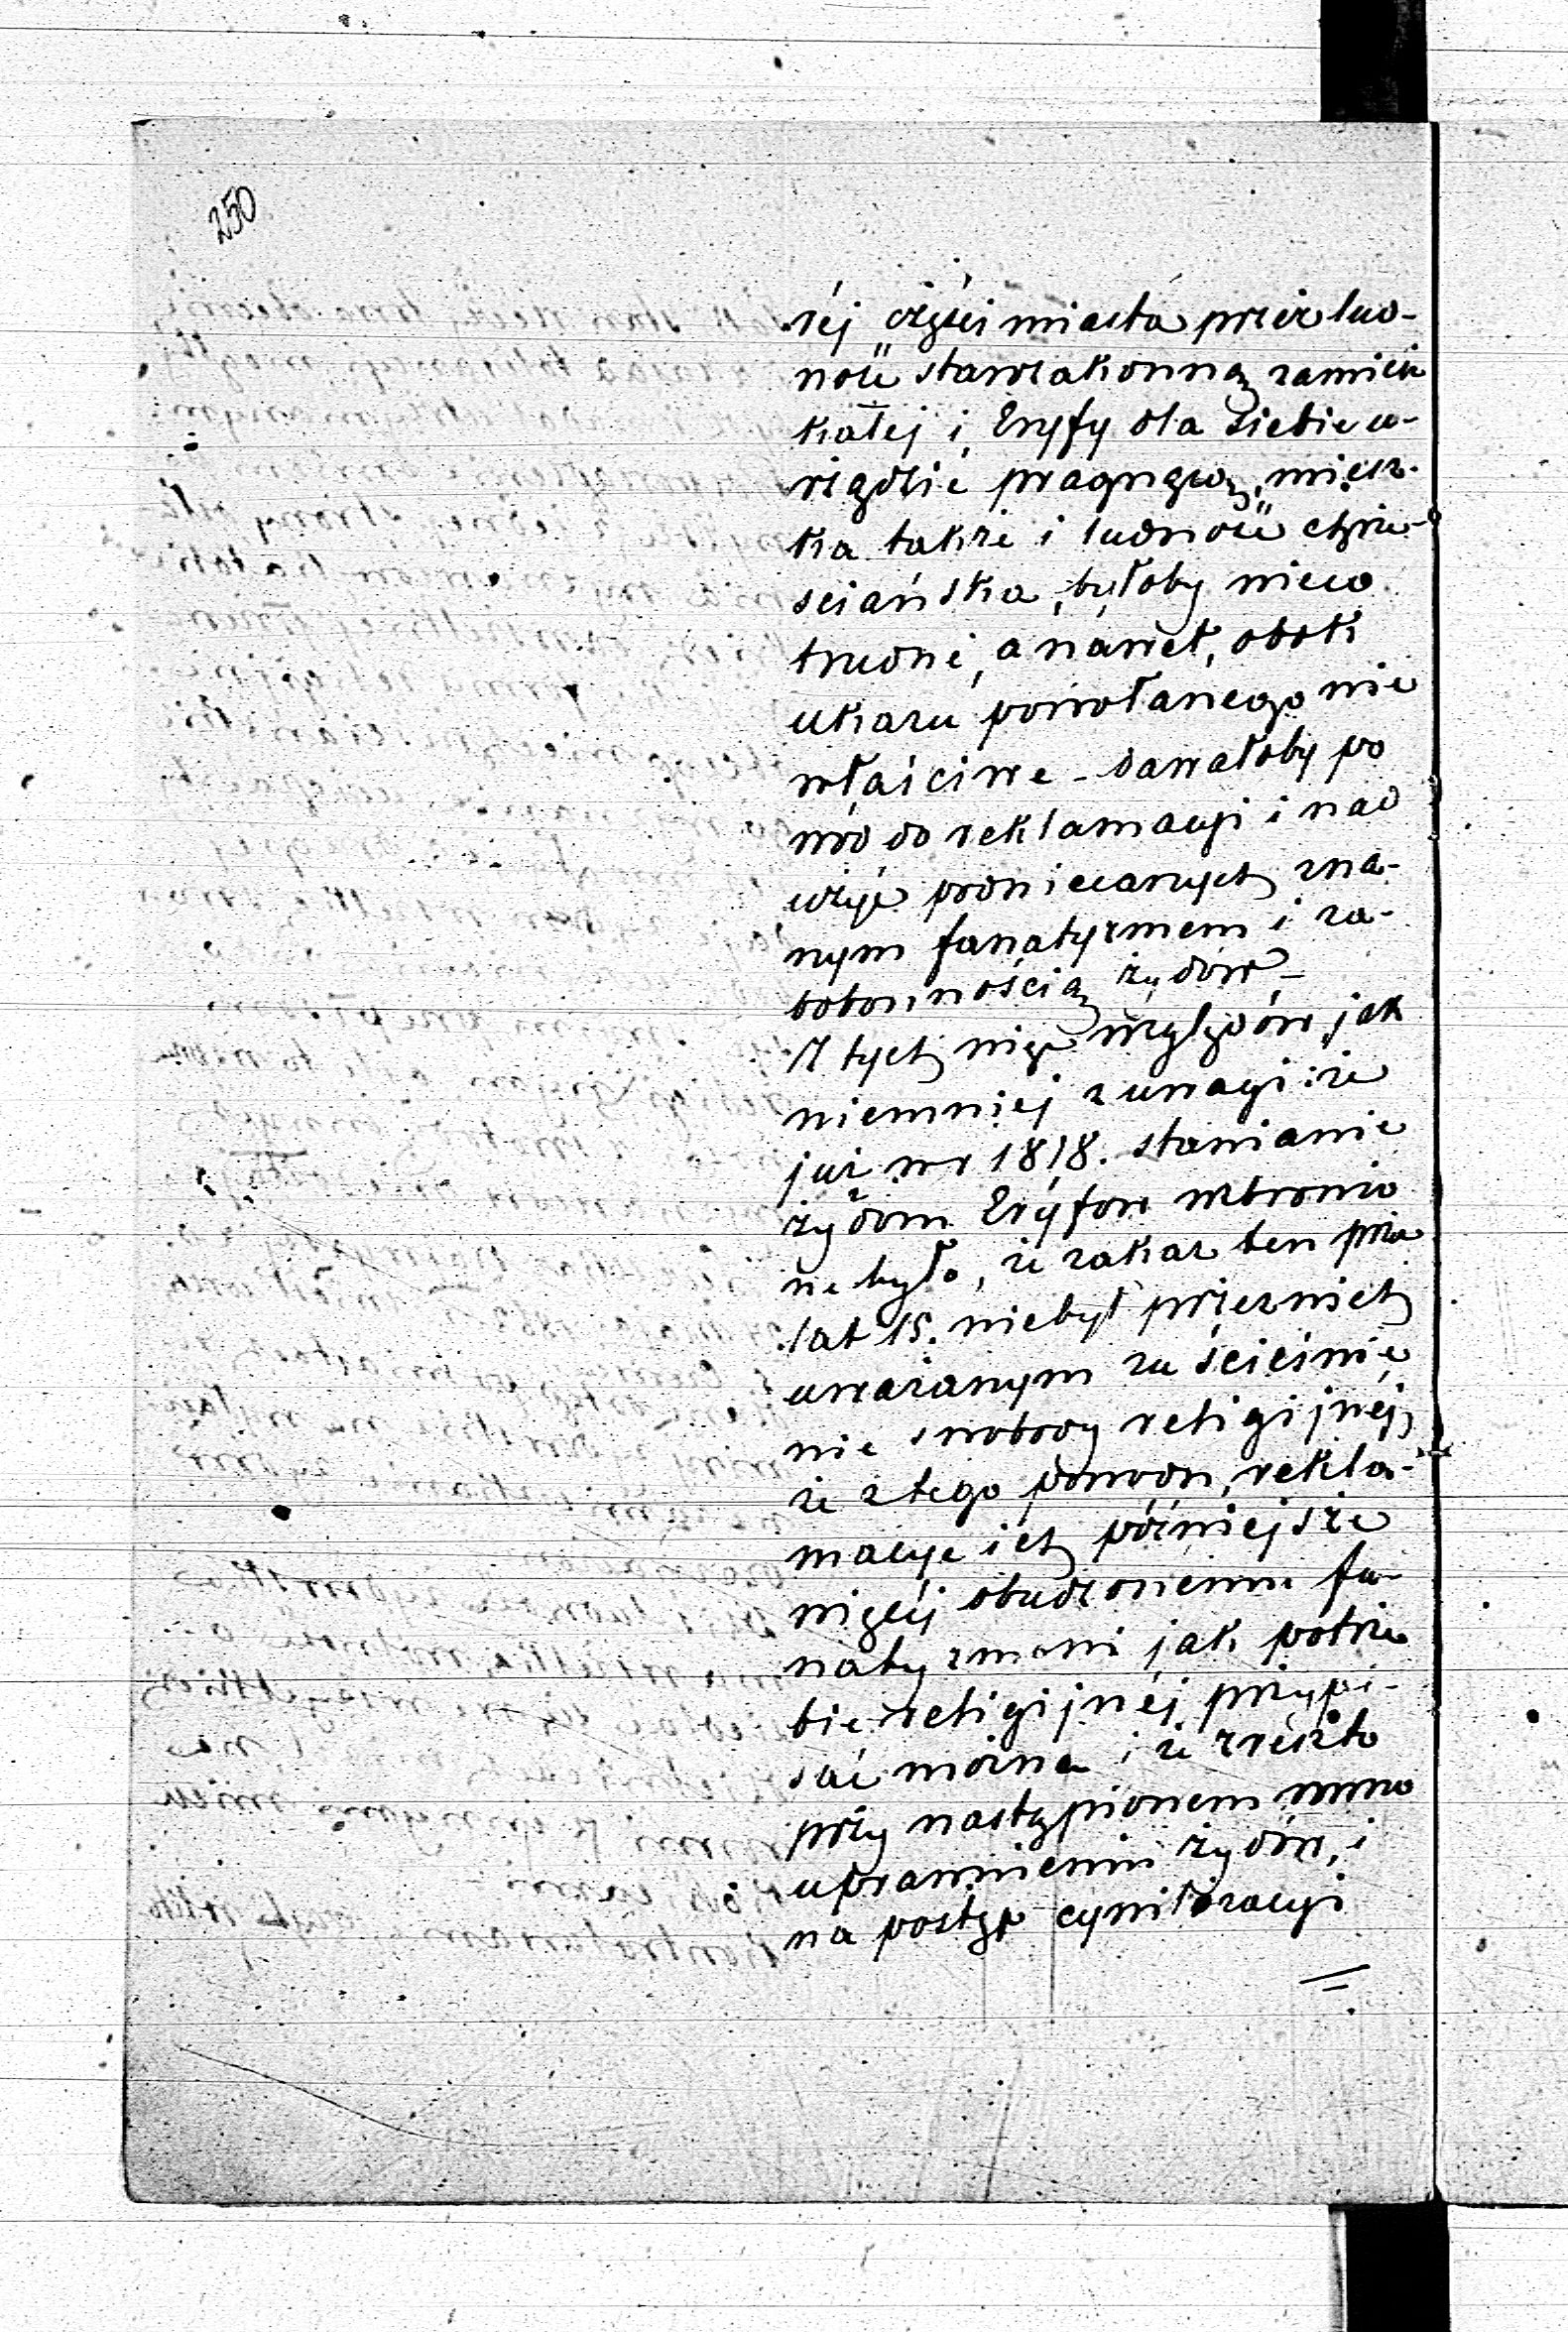 250
réj części miasta przez lud-
ność starozakonną zamiesz
kałej i Eryfy dla siebie u-
rządzić pragnącą, miesz-
ka także i ludność chrze-
sciańska, byłoby nieco
trudne, a nawet, obok
ukazu powołanego nie
właściwe – dawałoby po
wód do reklamacyi i nad
użyć podniecanych zna-
nym fanatyzmem i za-
bobonnością żydów –
Z tych więc względów, jak
niemniej z uwagi: że
już w r 1818. stawianie
żydom Eryfow wzbronio
ne było, że zakaz ten prze
lat 15. niebył przez nich
uważanym za ścieśnie
nie swobody religijnéj,
że z tego powodu, rekla-
macye ich późniejsze
więcéj obudzonemu fa-
natyzmowi jak potrze
bie religijnéj przypi-
sać można i że zresztą
przy nastąpionem równo
uprawnieniu żydów, i
na postęp cywilizacyi